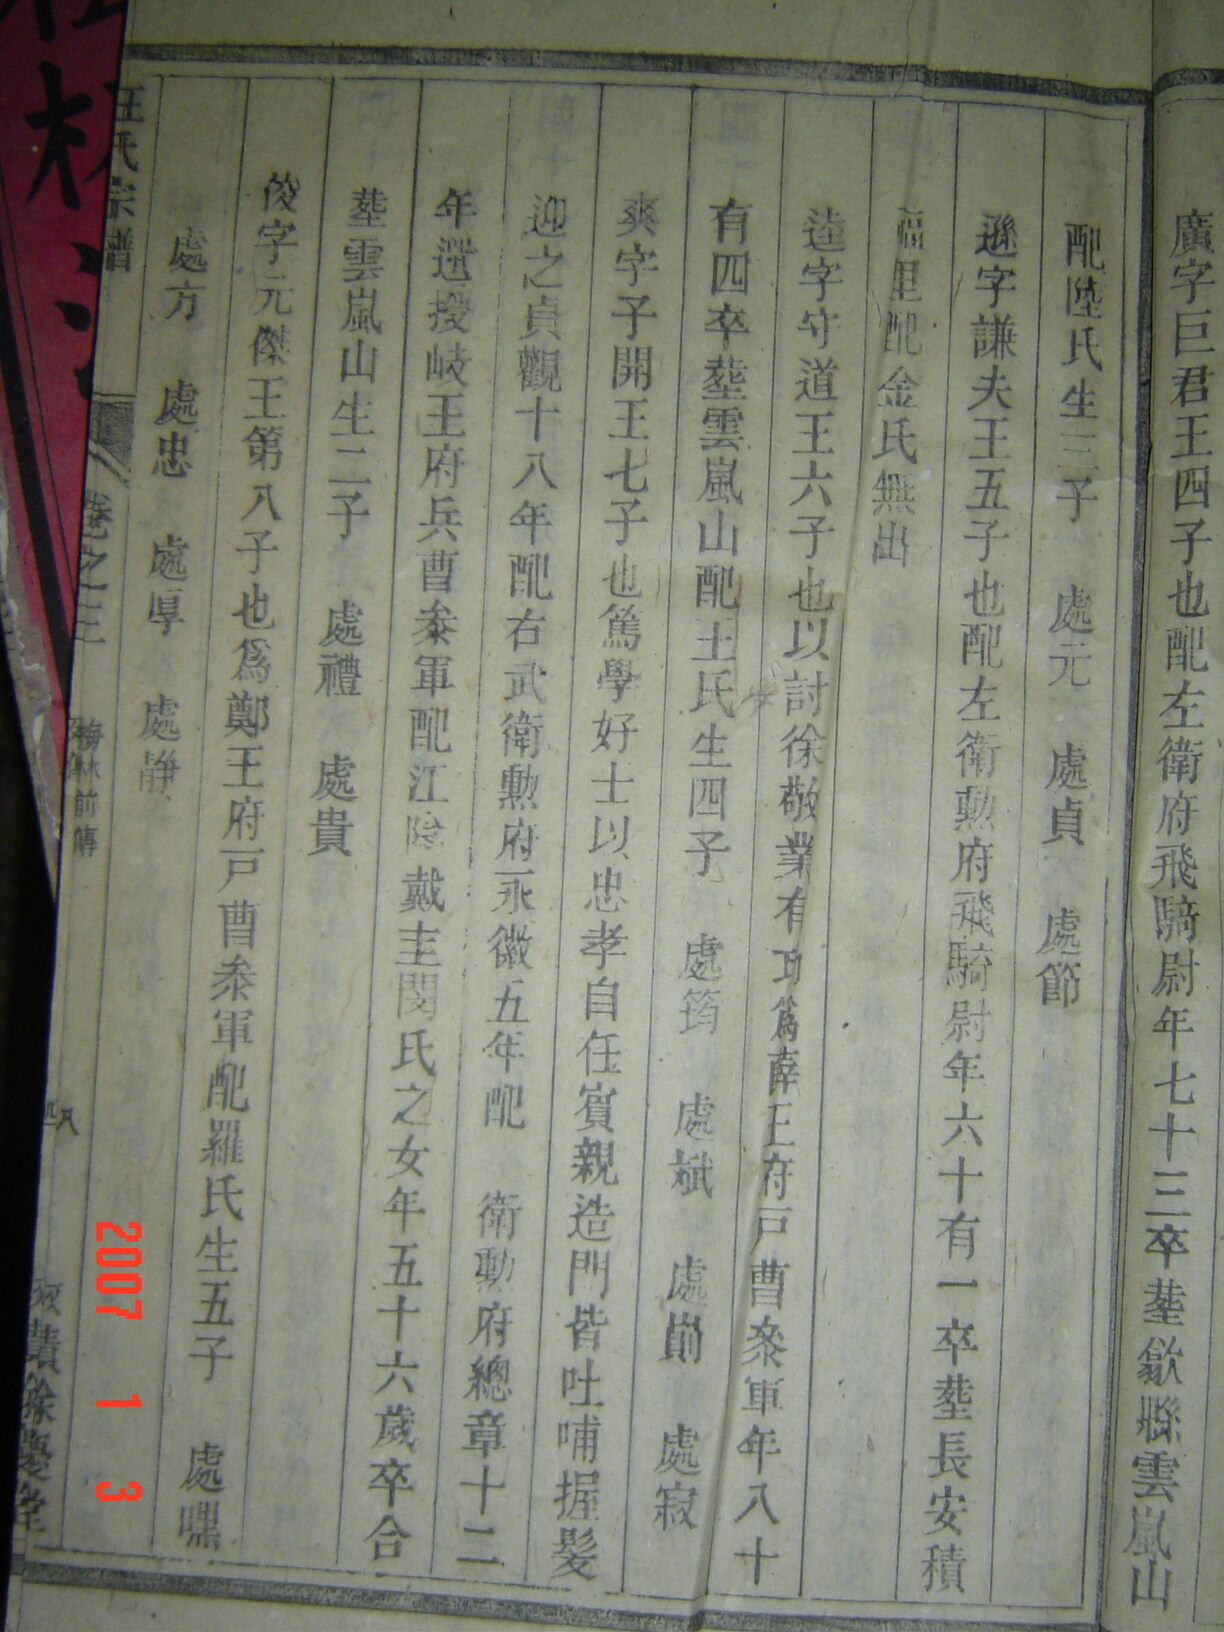 廣字巨君王四子也配左衛府飛騎尉年七十三卒塟歙縣雲嵐山
配陸氏生三子 處元 處貞 處節
遜字謙夫王五子也配左衛勲府飛騎尉年六十有一卒塟長安積
福里配金氏無出
逵字守道王六子也以討徐敬業有功爲薛王府戸曹叅軍年八十
有四卒塟雲嵐山配王氏生四子 處筠 處斌 處 處寂
爽字子開王七子也篤學好士以忠孝自任賓親造門皆吐哺握髮
迎之貞觀十八年配右武衛勲府永徽五年配 衛勳府總章十二
年選授岐王府兵曹叅軍配江陰戴主閔氏之女年五十六歲卒合
塟雲嵐山生二子 處禮 處貴
俊字元傑王第八子也爲鄭王府戸曹叅軍配羅氏生五子 處嘿
處方 處忠 處厚 處静
汪氏宗譜 卷之三 梅林前傳 八 餘慶堂
2007 1 3